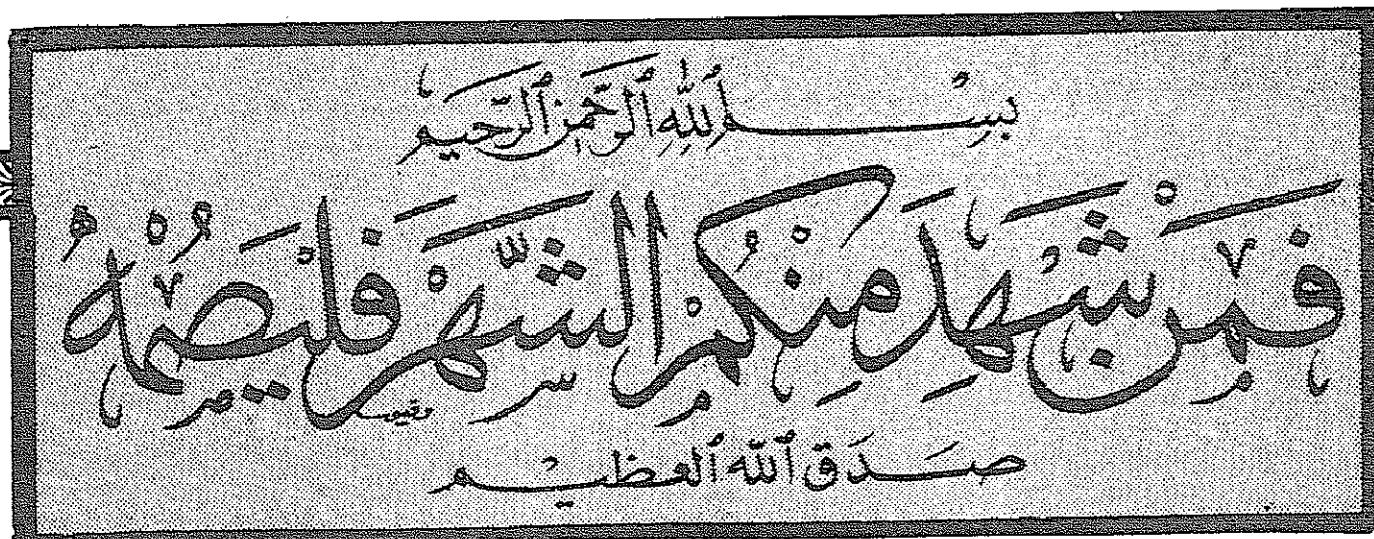 بِسْمِ ٱللَّهِ ٱلرَّحْمَٰنِ ٱلرَّحِيمِ
فَمَنْ شَهِدَ مِنْكُمُ الشَّهْرَ فَلْيَصُمْهُ
صَدَقَ ٱللَّه ٱلعَظيْم